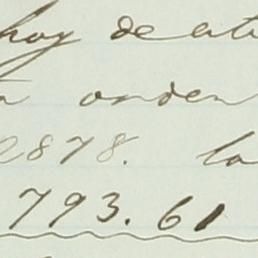 hoy de
orden
2878. la
793.61